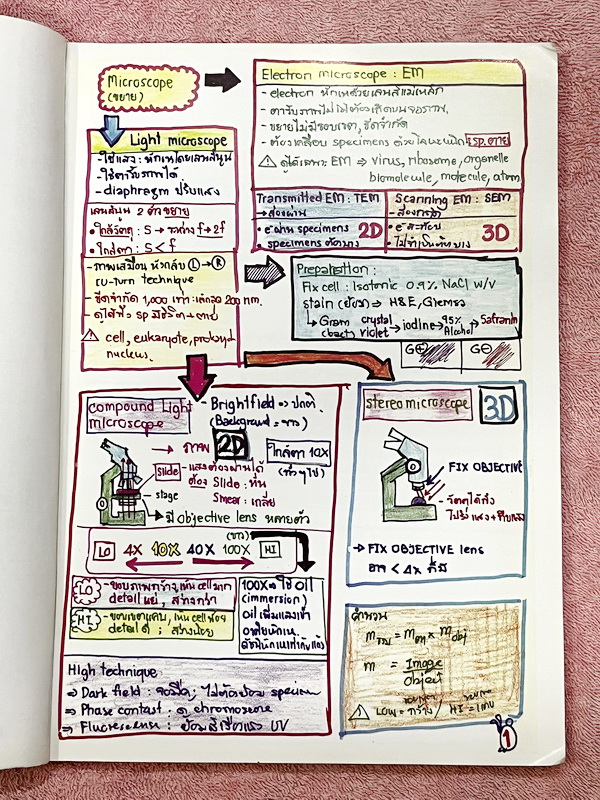 Microscope
(ขยาย)
Electron microscope : EM
- electron หักเหด้วยเลนส์แม่เหล็ก
- ตารับภาพไม่ได้ต้องเกิดบนจอภาพ
- ขยายไม่มีขอบเขต, ขีดจำกัด
- ต้องเคลือบ specimens ด้วยโลหะหนัก sp. ตาย
⚠ ดูได้เฉพาะ EM → virus, ribosome, organelle
biomolecule, molecule, atom
Light microscope
- ใช้แสง : หักเหโดยเลนส์นูน
- ใช้ตารับภาพได้
- diaphragm ปรับแสง
เลนส์นูน 2 ตัวขยาย
• ใกล้วัตถุ : S → ระหว่าง f → 2f
• ใกล้ตา : S < f
- ภาพเสมือน หัวกลับ L → R
- ขีดจำกัด 1,000 เท่า : เล็กสุด 200 nm.
- ดูได้ทั้ง sp มีชีวิต + ตาย
⚠ cell, eukaryote,
nucleus.
Transmitted EM : TEM
→ ส่องผ่าน
• e⁻ ผ่าน specimens 2D
specimens ตัดบาง
Scanning EM : SEM
- ส่องกราด
• e⁻ สะท้อน 3D
• ไม่จำเป็นต้องบาง
Preparation :
Fix cell : Isotonic 0.9% NaCl w/v
stain (ย้อม) ⇒ H&E, Giemsa
↳ Gram (bact) crystal violet → iodine → 95% Alcohol → Safranin
G⊕ G⊖
compound Light
microscope
- Brightfield ⇒ ปกติ
(Background = ขาว)
→ ภาพ 2D
ใกล้ตา 10X
(ทั่วๆไป)
Slide - แสงต้องผ่านได้
ต้อง Slide : หั่น
Smear : เกลี่ย
stage
→ มี objective lens หลายตัว
(ขาว)
LO 4X 10X 40X 100X HI
LO - ขอบภาพกว้าง, เห็น cell มาก
detail แย่, สว่างกว่า
HI - ขอบเขตแคบ, เห็น cell น้อย
detail ดี ; สว่างน้อย
100X → ใช้ Oil
(immersion)
Oil เพิ่มแสงเข้า
ดัชนีหักเหเท่ากับแก้ว
High technique
⇒ Dark field : จอมืด; ไม่ต้องย้อม specimen
⇒ Phase contast : ดู chromosome
⇒ Fluorescense : ย้อมสีเรืองแสง UV
stereo microscope 3D
FIX OBJECTIVE
- วัตถุได้ทั้ง
โปร่งแสง + ทึบแสง
→ FIX OBJECTIVE lens
< 4X ก็มี
คำนวณ
m = Image
Object
⚠ LOW = กว้าง / HI = แคบ
1